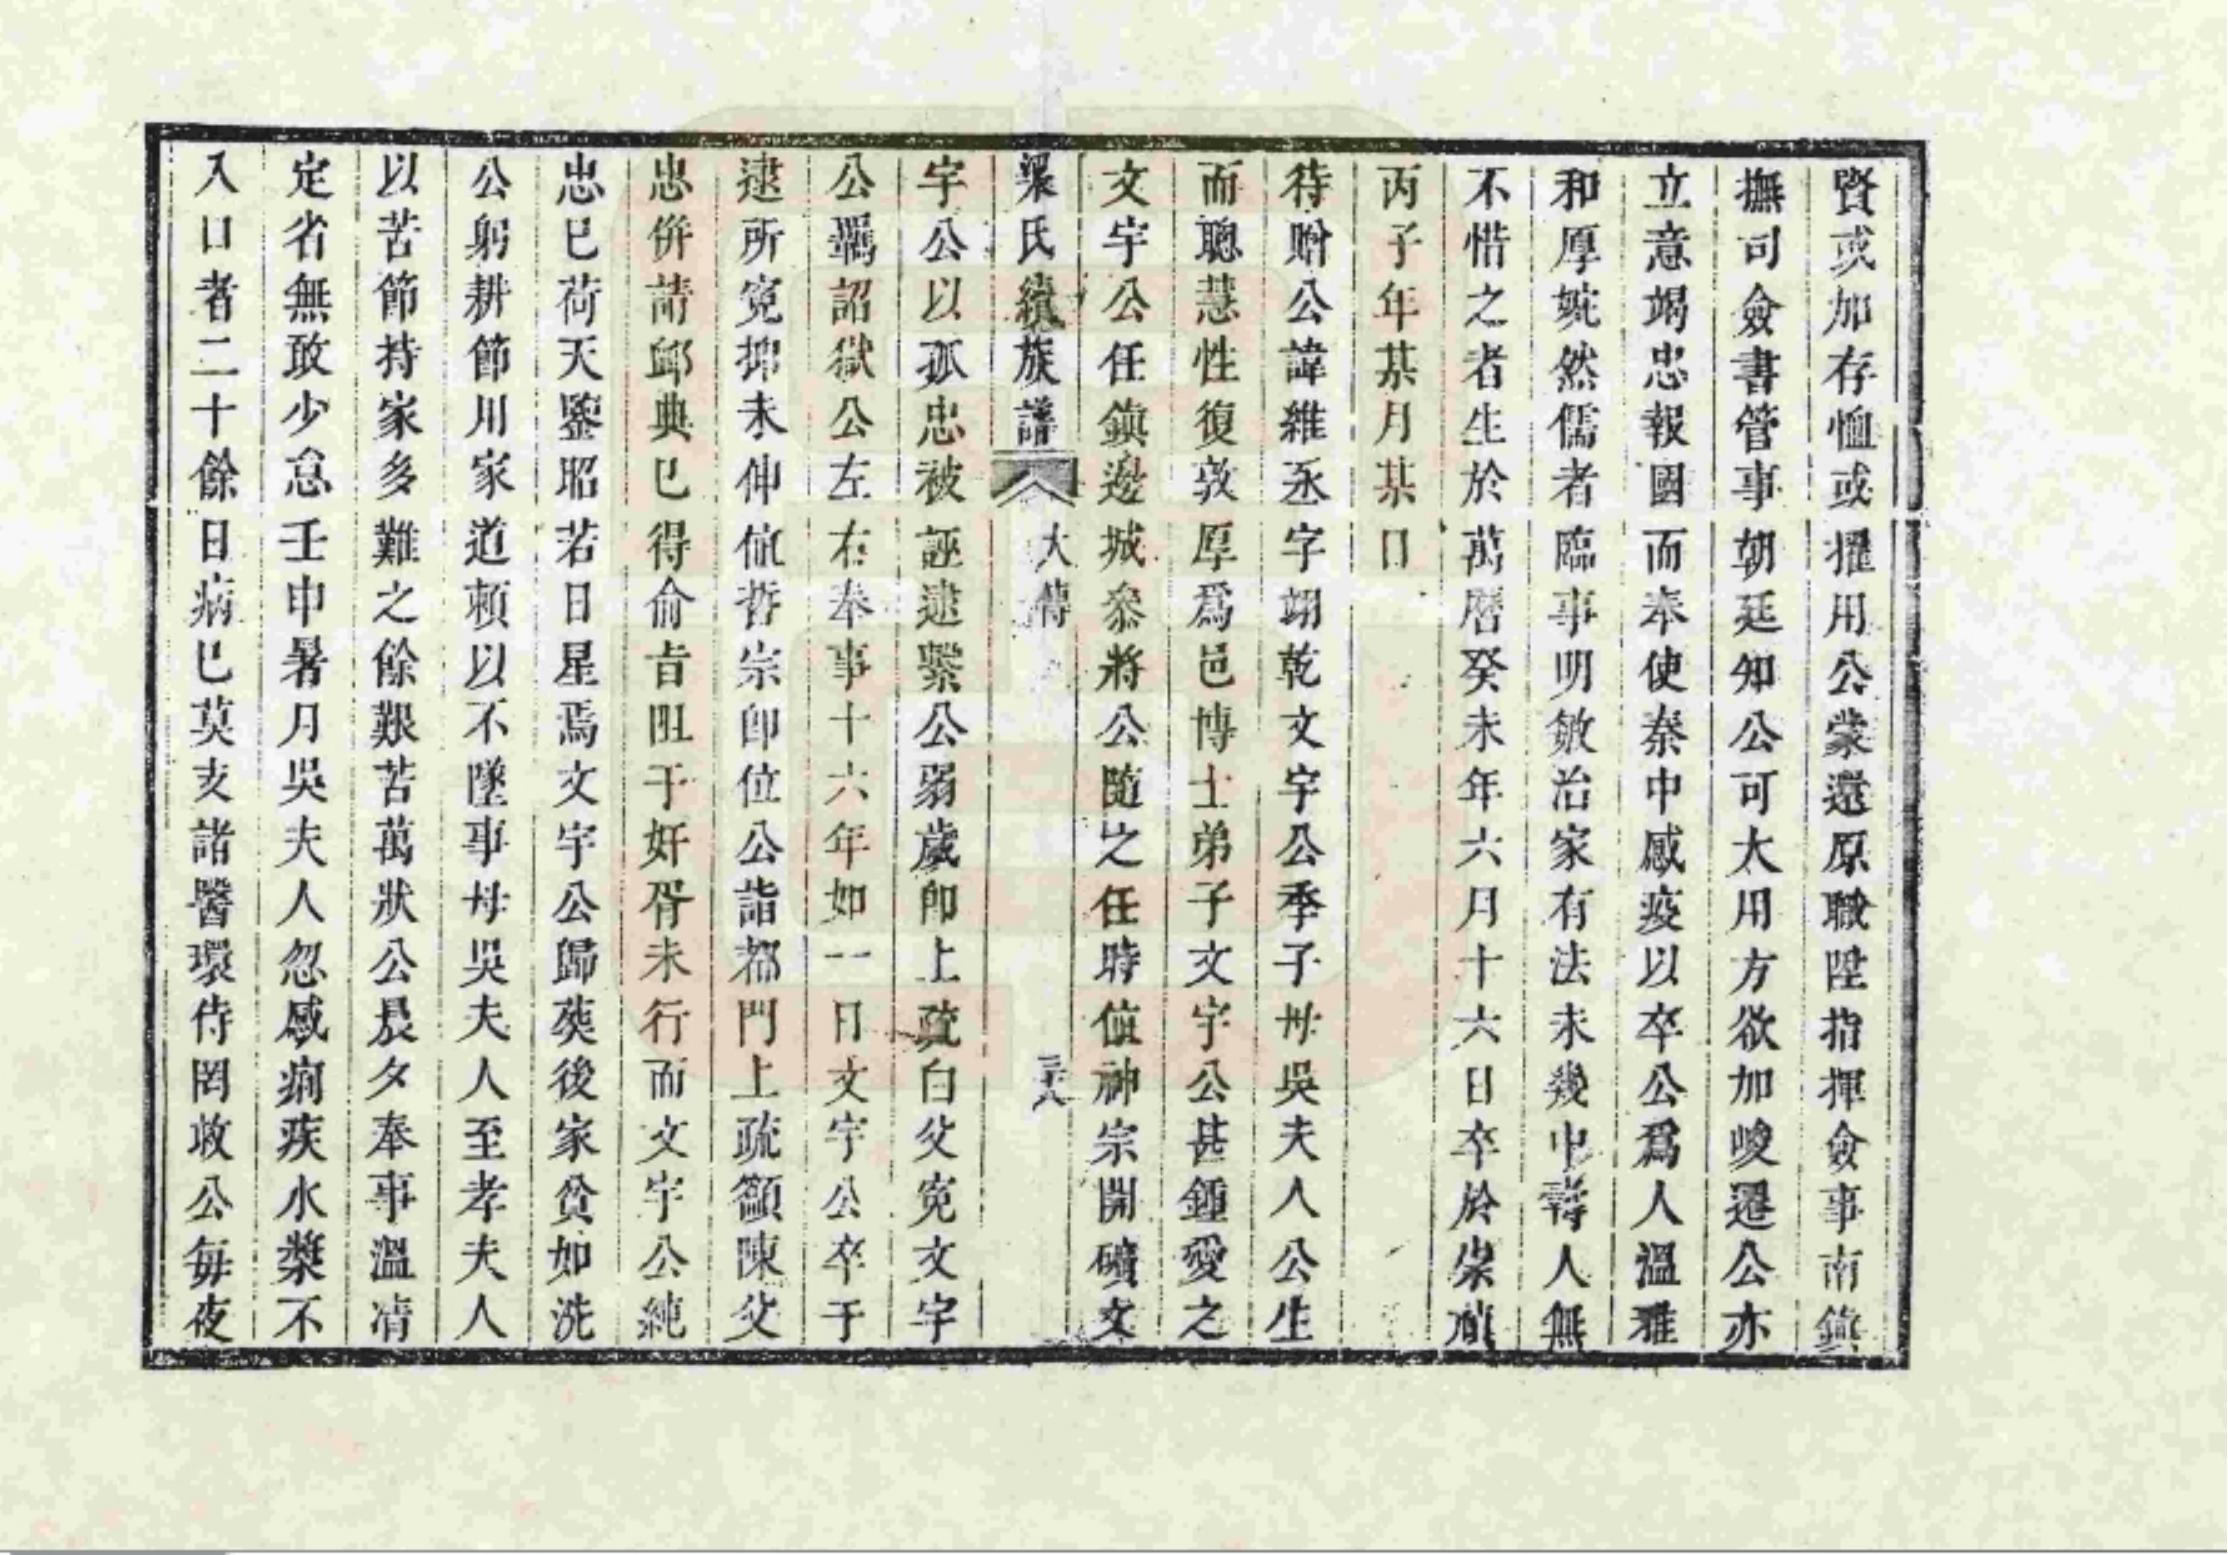 賢或加存恤或擢用公蒙還原職陞指揮僉事南鎮
撫司僉書管事朝廷知公可大用方欲加峻遷公亦
立意竭忠報國而奉使秦中感疫以卒公爲人溫雅
和厚婉然儒者臨事明敏治家有法未幾中壽人無
不惜之者生於萬曆癸未年六月十六日卒於崇禎
丙子年某月某日
待贈公諱維丞字翊乾文宇公季子母吳夫人公生
而聰慧性復敦厚爲邑博士弟子文宇公甚鍾愛之
文宇公任鎮邊城叅將公隨之任時值神宗開礦文
梁氏續族譜 大傳 三十八
宇公以孤忠被誣逮繫公弱歲卽上疏白父寃文宇
公羈詔獄公左右奉事十六年如一日文宇公卒于
逮所寃抑未伸值哲宗卽位公詣都門上疏籲陳父
忠併請卹典已得俞旨阻于奸胥未行而文宇公純
忠已荷天鑒昭若日星焉文宇公歸葬後家貧如洗
公躬耕節用家道賴以不墜事母吳夫人至孝夫人
以苦節持家多難之餘艱苦萬狀公晨夕奉事溫凊
定省無敢少怠壬申暑月吳夫人忽感痢疾水漿不
入口者二十餘日病已莫支諸醫環侍罔效公每夜